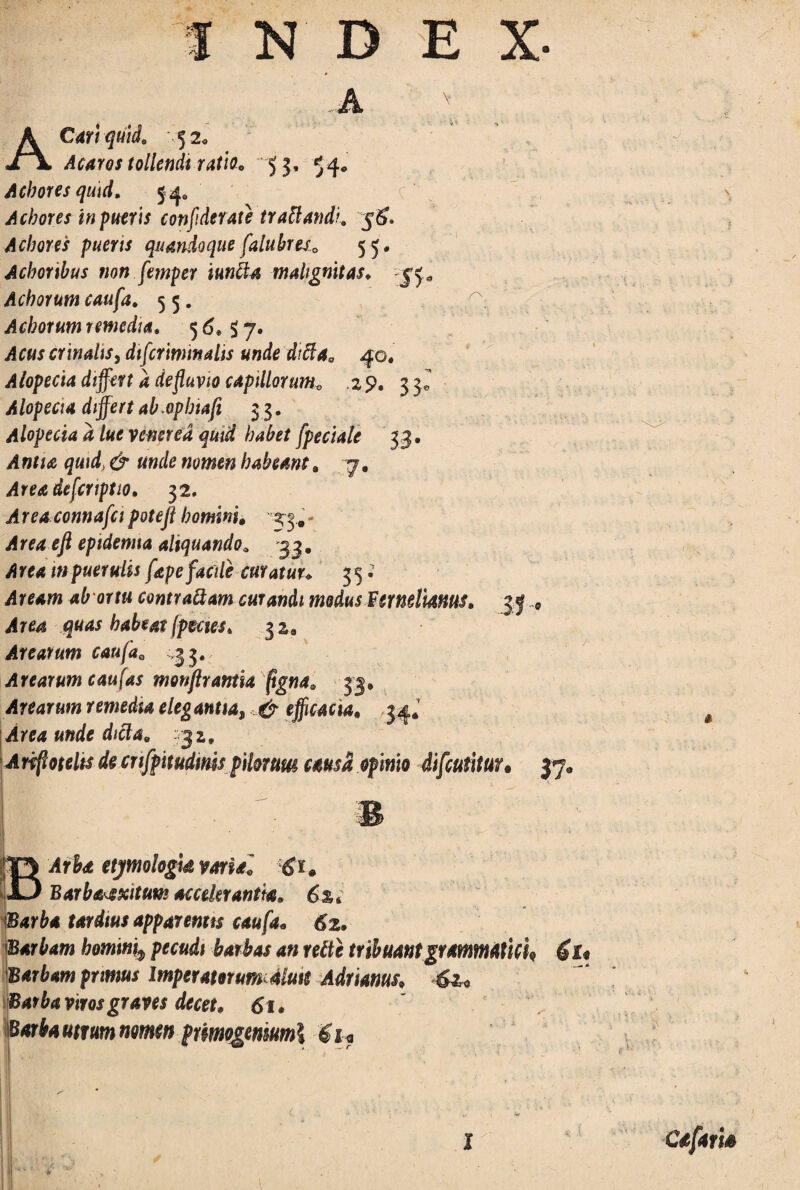 INDEX.
A
ACari quid. 52.
Acaros tollendi ratio. 53, 54.
Achores quid. 54.
Achores in pueris conſiderate tractandi. 56.
Achores pueris quandoque ſalubres. 55.
Achoribus non ſemper iuncta malignitas. 55.
Achorum cauſa. 55.
Achorum remedia. 56. 57.
Acus crinalis, diſcriminalis unde dicta. 40.
Alopecia differt à defluvio capillorum. 29. 33.
Alopecia differt ab ophiaſi 33.
Alopecia à lue venereâ quid habet ſpeciale 33.
Antiæ quid, & unde nomen habeant. 7.
Areæ deſcriptio. 32.
Area connaſci poteſt homini. 33.
Area eſt epidemia aliquando. 33.
Area in puerulis ſæpe facilè curatur. 35.
Aream ab ortu contractam curandi modus Fernelianus. 35.
Area quas habeat ſpecies. 32.
Arearum cauſa. 33.
Arearum cauſas monſtrantia ſigna. 33.
Arearum remedia elegantia, & efficacia. 34.
Area unde dicta. 32.
Ariſtotelis de criſpitudinis pilorum causâ opinio diſcutitur. 37.
B
BArbæ etymologiæ variæ. 61.
Barbæ exitum accelerantia. 62.
Barba tardius apparentis cauſa. 62.
Barbam homini, pecudi barbas an rectè tribuant grammatici. 61.
Barbam primus Imperatorum aluit Adrianus. 62.
Barba viros graves decet. 61.
Barba utrum nomen primogenium? 61.
I Cæſaria